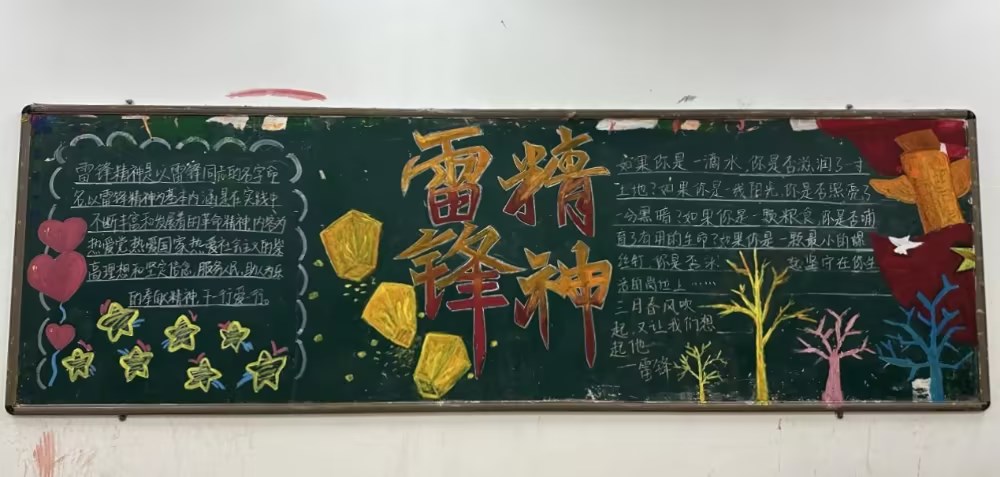 雷锋精神是以雷锋同志的名字命
名以雷锋精神为基本内涵是在实践中
不断丰富和发展着的革命精神内容为
热爱党热爱国家热爱社会主义的崇
高理想和坚定信念,服务人民,助人为乐
的奉献精神干一行爱一行。
雷 精
锋 神
如果你是一滴水,你是否滋润了一寸
土地?如果你是一线阳光,你是否照亮了
一分黑暗?如果你是一颗粮食,你是否哺
育了有用的生命?如果你是一颗最小的螺
丝钉,你是否永 坚守在你生
活的岗位上……
三月春风吹
起,又让我们想
起他
一雷锋